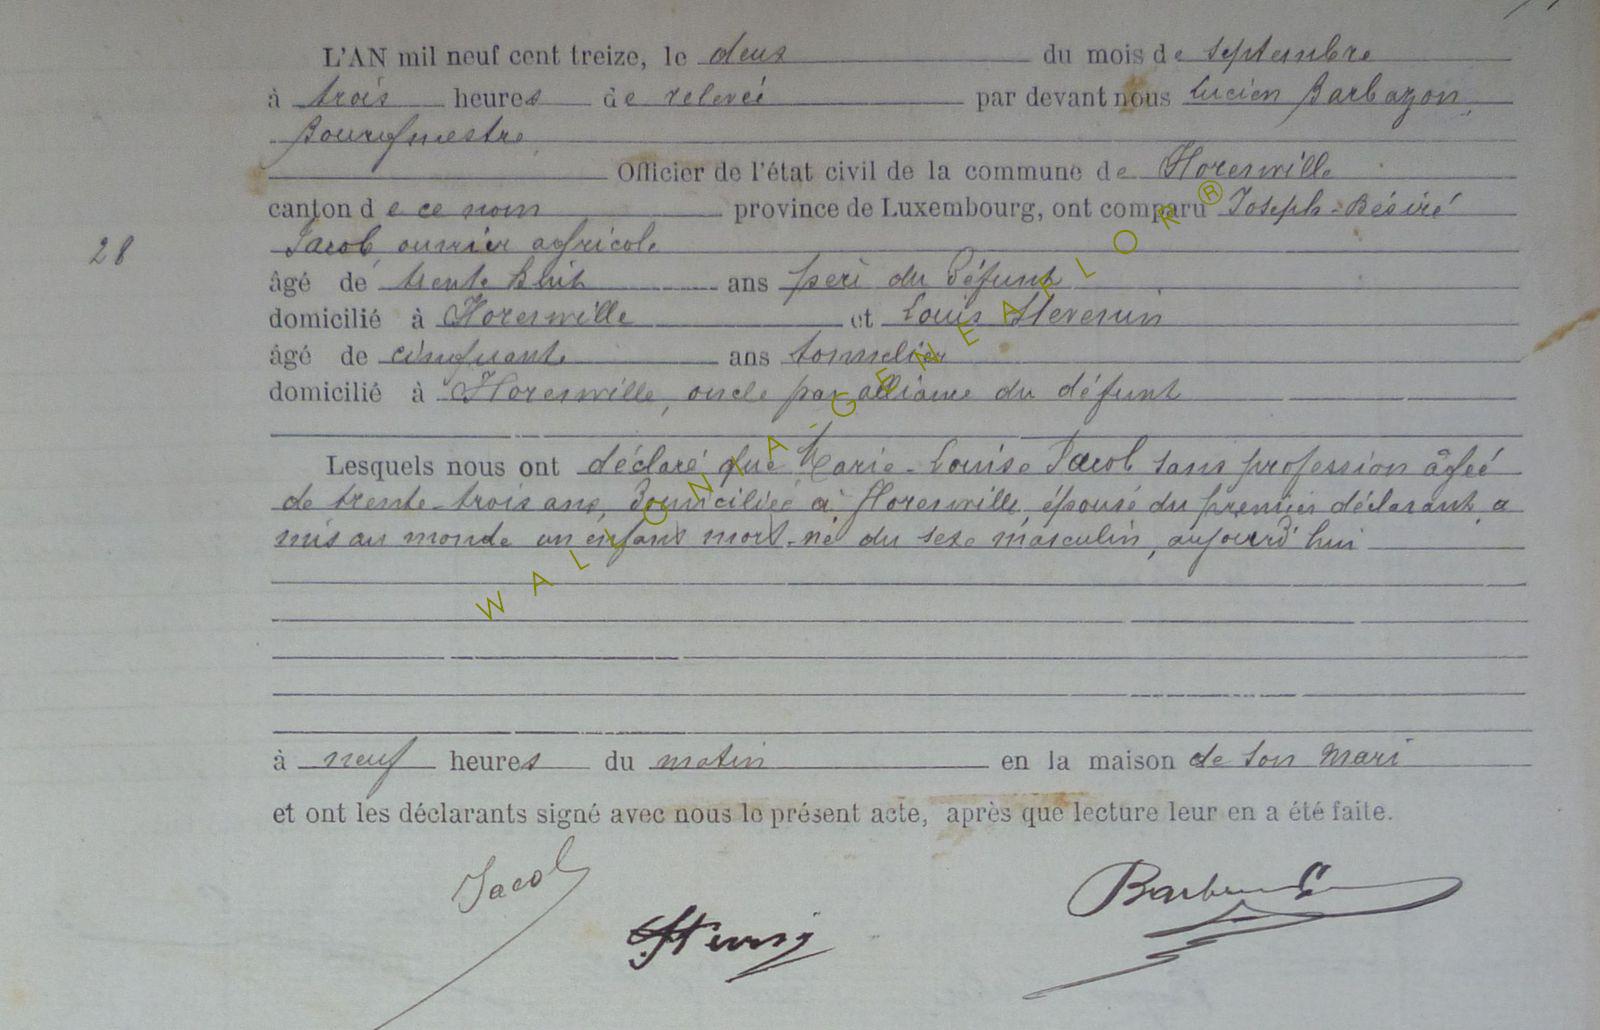 L'AN mil neuf cent treize, le deux du mois de septembre
à trois heures de relevée par devant nous Lucien Barbazon,
Bourgmestre
Officier de l'état civil de la commune de Florenville
canton de ce nom province de Luxembourg, ont comparu Joseph-Désiré
Jacob, ouvrier agricole
28
âgé de trente huit ans père du défunt
domicilié à Florenville et Louis Stevenin
âgé de cinquante ans tonnelier
domicilié à Florenville, oncle par alliance du défunt
Lesquels nous ont déclaré que Marie-Louise Jacob sans profession âgée
de trente-trois ans, domiciliée à Florenville, épouse du premier déclarant, a
mis au monde un enfant mort-né du sexe masculin, aujourd'hui
à neuf heures du matin en la maison de son mari
et ont les déclarants signé avec nous le présent acte, après que lecture leur en a été faite.
Jacob
WALLONIA-GENEAFLOR®